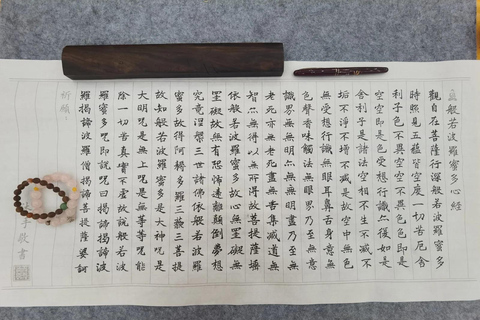 般若波羅蜜多心經
觀自在菩薩行深般若波羅蜜多
時照見五蘊皆空度一切苦厄舍
利子色不異空空不異色色即是
空空即是色受想行識亦復如是
舍利子是諸法空相不生不滅不
垢不淨不增不減是故空中無色
無受想行識無眼耳鼻舌身意無
色聲香味觸法無眼界乃至無意
識界無無明亦無無明盡乃至無
老死亦無老死盡無苦集滅道無
智亦無得以無所得故菩提薩埵
依般若波羅蜜多故心無罣礙無
罣礙故無有恐怖遠離顛倒夢想
究竟涅槃三世諸佛依般若波羅
蜜多故得阿耨多羅三藐三菩提
故知般若波羅蜜多是大神咒是
大明咒是無上咒是無等等咒能
除一切苦真實不虛故說般若波
羅蜜多咒即說咒曰揭諦揭諦波
羅揭諦波羅僧揭諦菩提薩婆訶
祈願：
子敬書